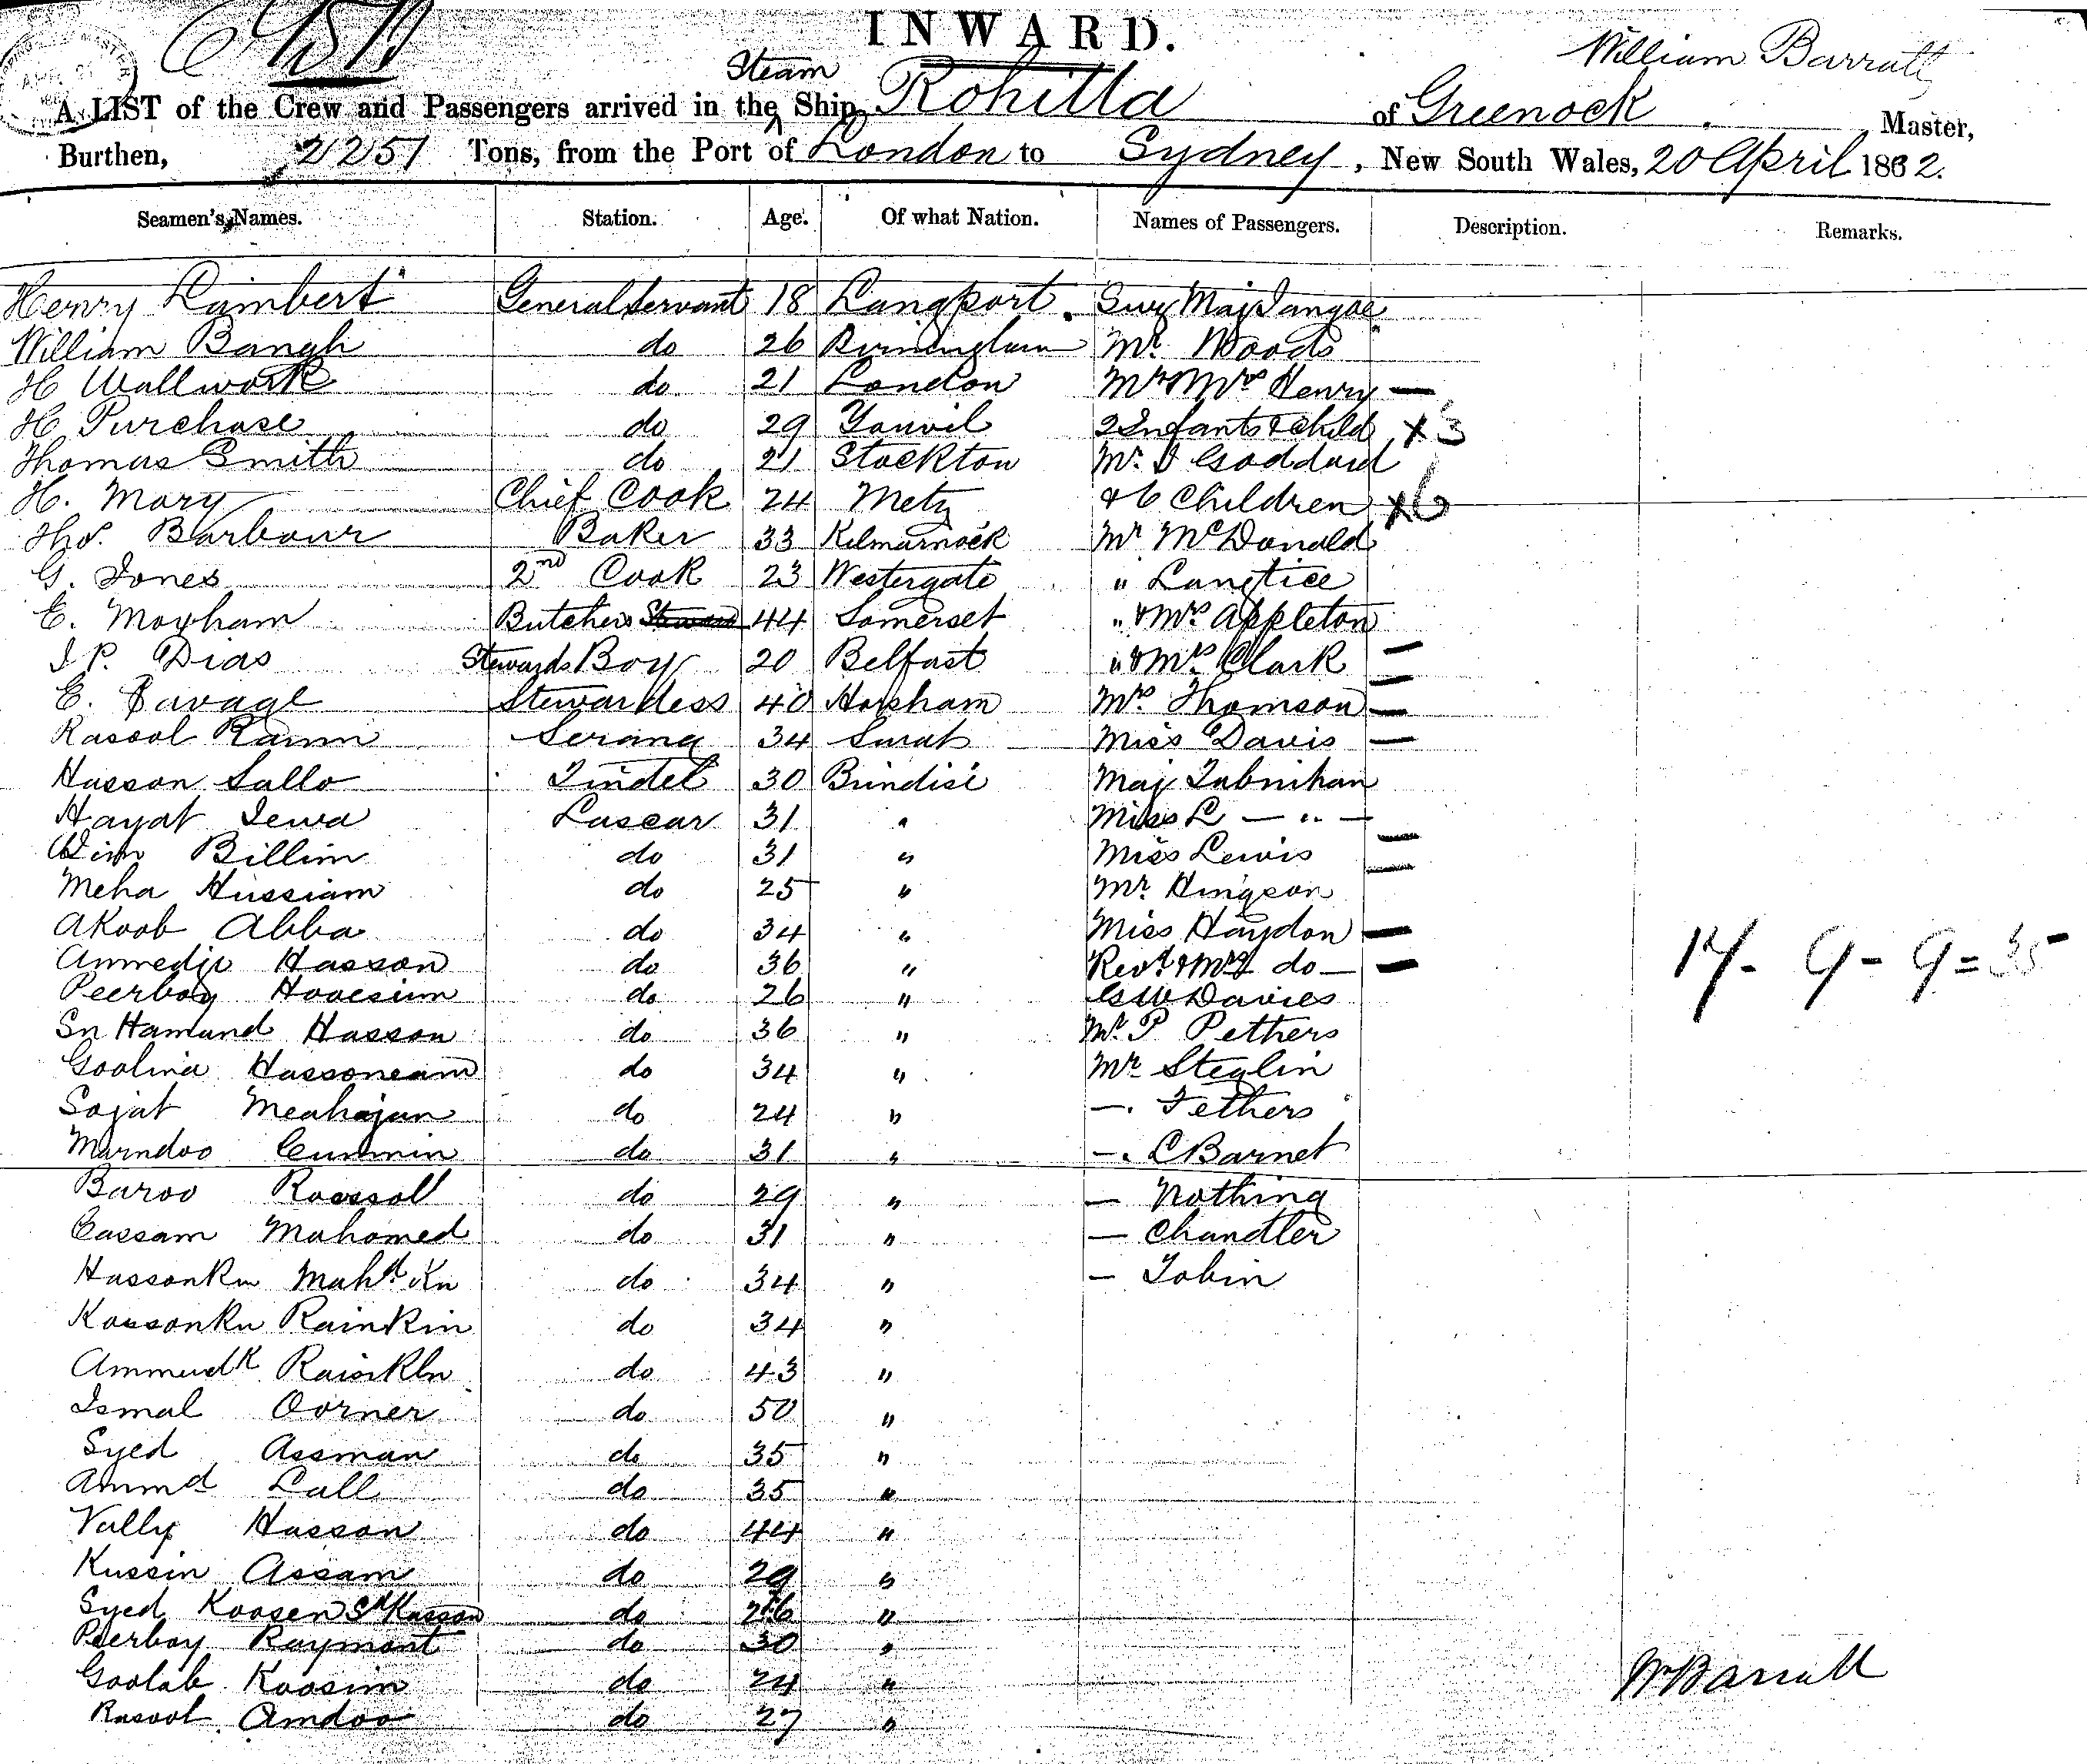 INWARD.
William Barratt
Steam
A LIST of the Crew and Passengers arrived in the Ship Rohilla of Greenock Master,
Burthen, 2251 Tons, from the Port of London to Sydney, New South Wales, 20 April 1882.
Seamen's Names. Station. Age. Of what Nation. Names of Passengers. Description. Remarks.
Henry Lambert General Servant 18 Langport. Maj
William Bangh do 26 Birmingham Mr. Woods
H Wallwork do 21 London Mr & Mrs Henry —
H Purchase do 29 Youvil 2 Infants & child x3
Thomas Smith do 21 Stockton Mr. Goddard
H. Mory Chief Cook 24 Metz & 6 Children x6
Thos. Barbour Baker 33 Kilmarnock Mr McDonald
G. Jones 2nd Cook 23 Westergate " Langtice
E. Moxham Butcher 44 Somerset " & Mrs Appleton
J P. Dias Stewards Boy 20 Belfast " & Mrs Clark —
E. Savage Stewardess 40 Horsham Mrs Thomson —
Rasool Ramm Serang 34 Surat Miss Davis —
Hasson Sallo Tindel 30 Brindisi Maj
Hayat Jewa Lascar 31 " Miss L — " —
Billim do 31 " Miss Lewis —
Meha Hussiam do 25 " Mr Hingson
Akoob Abba do 34 " Miss Haydon —
Ammedji Hasson do 36 " Revd & Mrs do —
Peerboy Hooesium do 26 " G W Davies
Sn Hamund Hasson do 36 " Mr. P Pethers
Goolina Hassoneam do 34 " Mr Steglin
Sojat Meahajan do 24 " —. Tethers
Marndoo Cummin do 31 " —. C Barnet
Baroo Roossoll do 29 " — Nothing
Cassam Mahomed do 31 " — Chandler
HassonKn Mahd Kn do 34 " — Tobin
KossonKn RainKin do 34 "
AmmudK do 43 "
Ismal Oorner do 50 "
Syed Assman do 35 "
Ammd Lall do 35 "
Vally Hasson do 44 "
Kussin Assam do 29 "
Syed Koosen Sd Kasson do 26 "
Peerboy Raymont do 30 "
Goolab Koosim do 24 "
Rasool Amdoo do 27 "
17 - 9 - 9 = 35
W Barratt